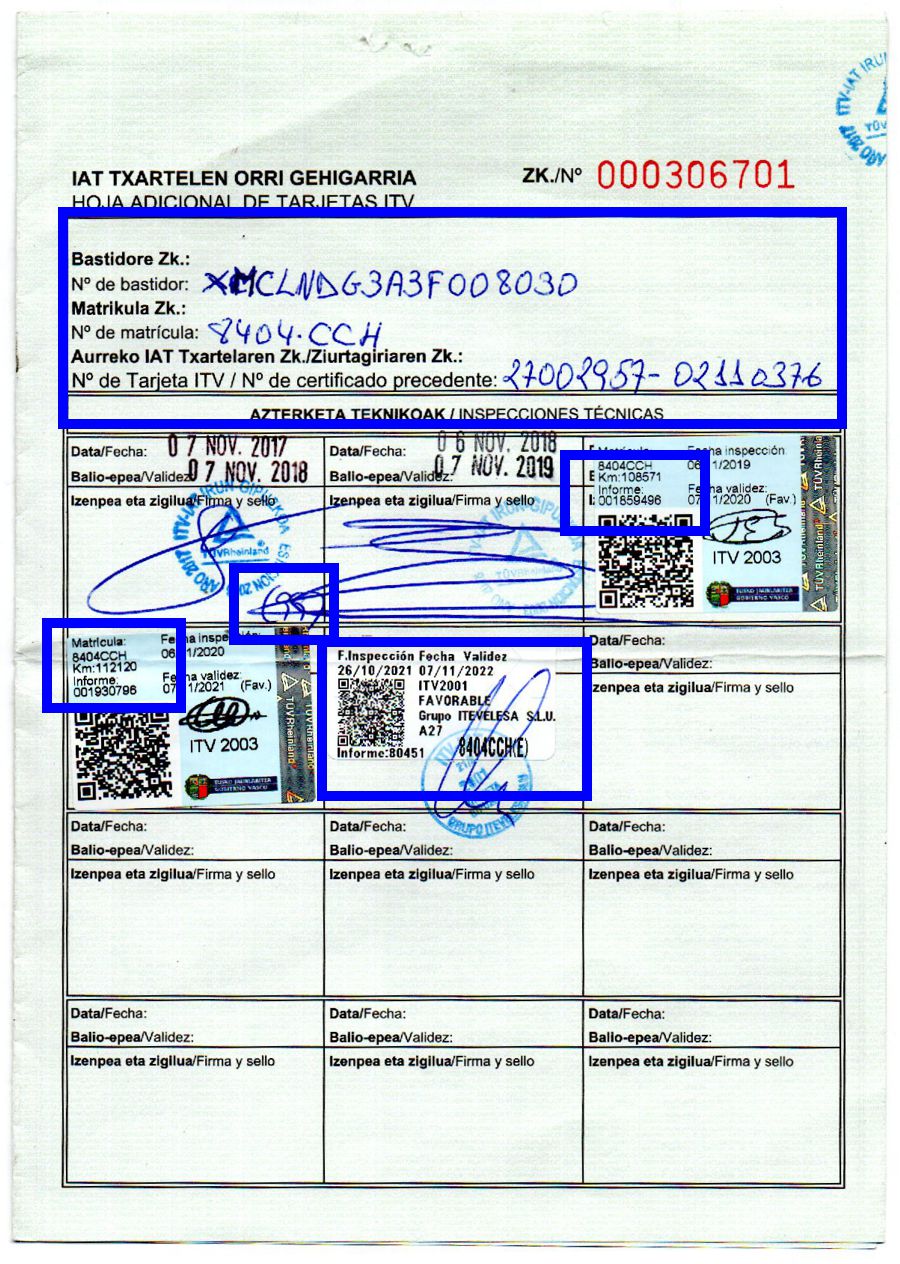 IAT TXARTELEN ORRI GEHIGARRIA
HOJA ADICIONAL DE TARJETAS ITV
ZK./Nº 000306701
Bastidore Zk.:
Nº de bastidor: XMCLNDG3A3F008030
Matrikula Zk.:
Nº de matrícula: 8404-CCH
Aurreko IAT Txartelaren Zk./Ziurtagiriaren Zk.:
Nº de Tarjeta ITV / Nº de certificado precedente: 27002957-02110376
AZTERKETA TEKNIKOAK / INSPECCIONES TÉCNICAS
Data/Fecha: 07 NOV. 2017
Balio-epea/Validez: 07 NOV. 2018
Izenpea eta zigilua/Firma y sello
TÜVRheinland
Data/Fecha: 06 NOV. 2018
Balio-epea/Validez: 07 NOV. 2019
Izenpea eta zigilua/Firma y sello
TÜVRheinland
Matrícula: Fecha inspección:
8404CCH 06/11/2019
Km:108571
Informe: Fecha validez:
001859496 07/11/2020 (Fav.)
ITV 2003
EUSKO JAURLARITZA
GOBIERNO VASCO
TÜVRheinland
Matrícula: Fecha inspección:
8404CCH 06/11/2020
Km:112120
Informe: Fecha validez:
001930796 07/11/2021 (Fav.)
ITV 2003
EUSKO JAURLARITZA
GOBIERNO VASCO
TÜVRheinland
F.Inspección Fecha Validez
26/10/2021 07/11/2022
ITV2001
FAVORABLE
Grupo ITEVELESA S.L.U.
A27
8404CCH(E)
Informe:80451
Data/Fecha:
Balio-epea/Validez:
Izenpea eta zigilua/Firma y sello
Data/Fecha:
Balio-epea/Validez:
Izenpea eta zigilua/Firma y sello
Data/Fecha:
Balio-epea/Validez:
Izenpea eta zigilua/Firma y sello
Data/Fecha:
Balio-epea/Validez:
Izenpea eta zigilua/Firma y sello
Data/Fecha:
Balio-epea/Validez:
Izenpea eta zigilua/Firma y sello
Data/Fecha:
Balio-epea/Validez:
Izenpea eta zigilua/Firma y sello
Data/Fecha:
Balio-epea/Validez:
Izenpea eta zigilua/Firma y sello